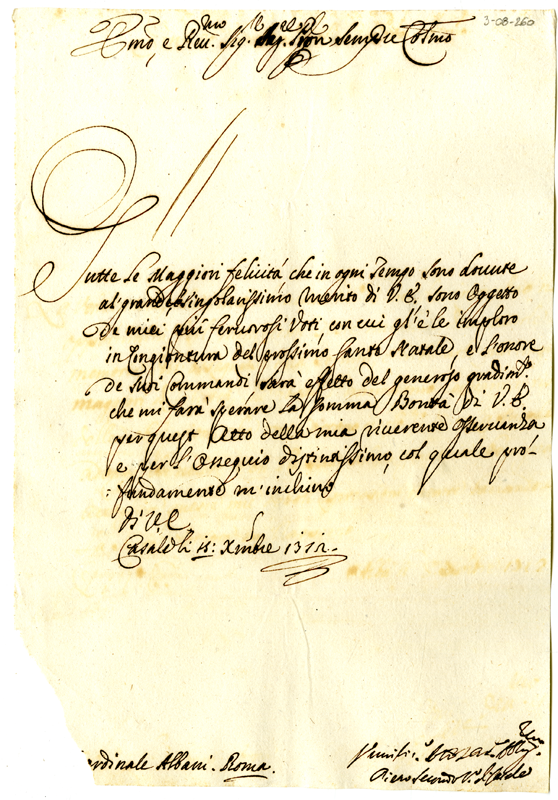 3-08-260
Emo, e Reu.mo Sig. Sig. Pron Sempre Colmo
Tutte le Maggiori felicità che in ogni Tempo sono douute
al grande e singolarissimo merito di V. E. sono Oggetto
de miei più feruorosi Voti, con cui gl'è le imploro
in Congiontura del prossimo Santo Natale, e l'onore
de Suoi Commandi sarà effetto del generoso gradim.to
che mi farà sperare la somma Bontà di V. E.
per quest'Atto della mia riuerente Osseruanza
e per l'Ossequio distintissimo, col quale pro-
:fundamente m'inchino
Di V. E.
Casale li 15: Xmbre
Cardinale Albani. Roma.
Piero Secondo V.o di Casale